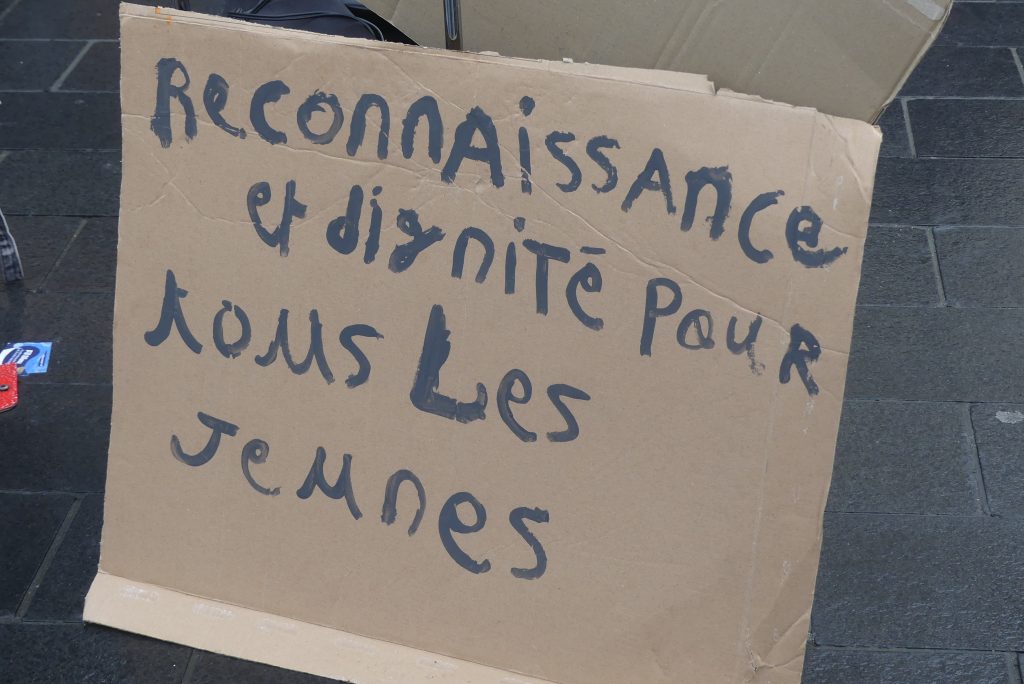 ReconnAissAnce
et dignité pour
tous Les
Jeunes